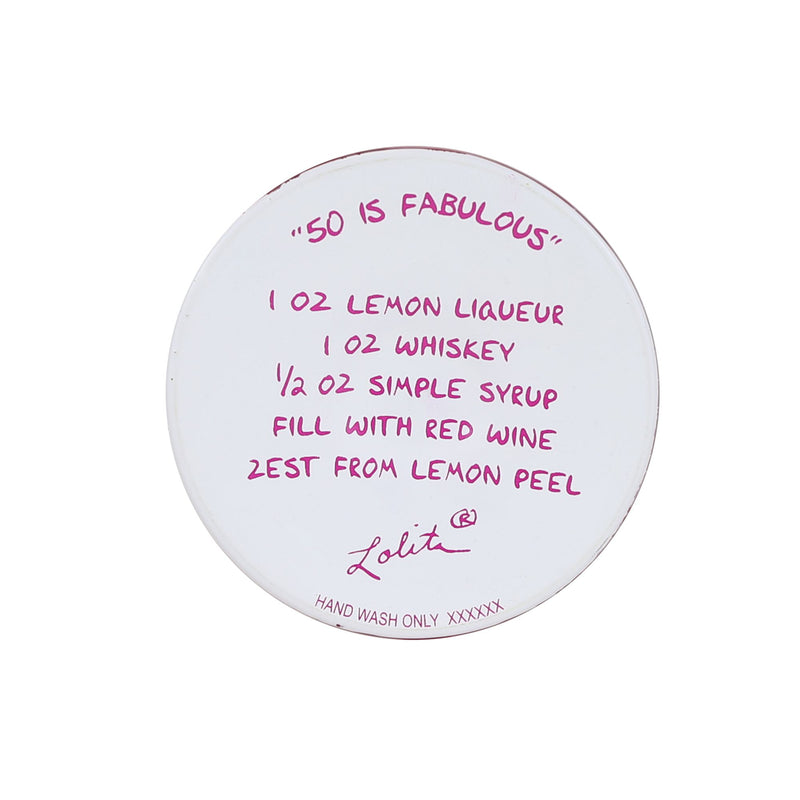 "50 IS FABULOUS"
1 OZ LEMON LIQUEUR
1 OZ WHISKEY
1/2 OZ SIMPLE SYRUP
FILL WITH RED WINE
ZEST FROM LEMON PEEL
Lolita ®
HAND WASH ONLY XXXXXX